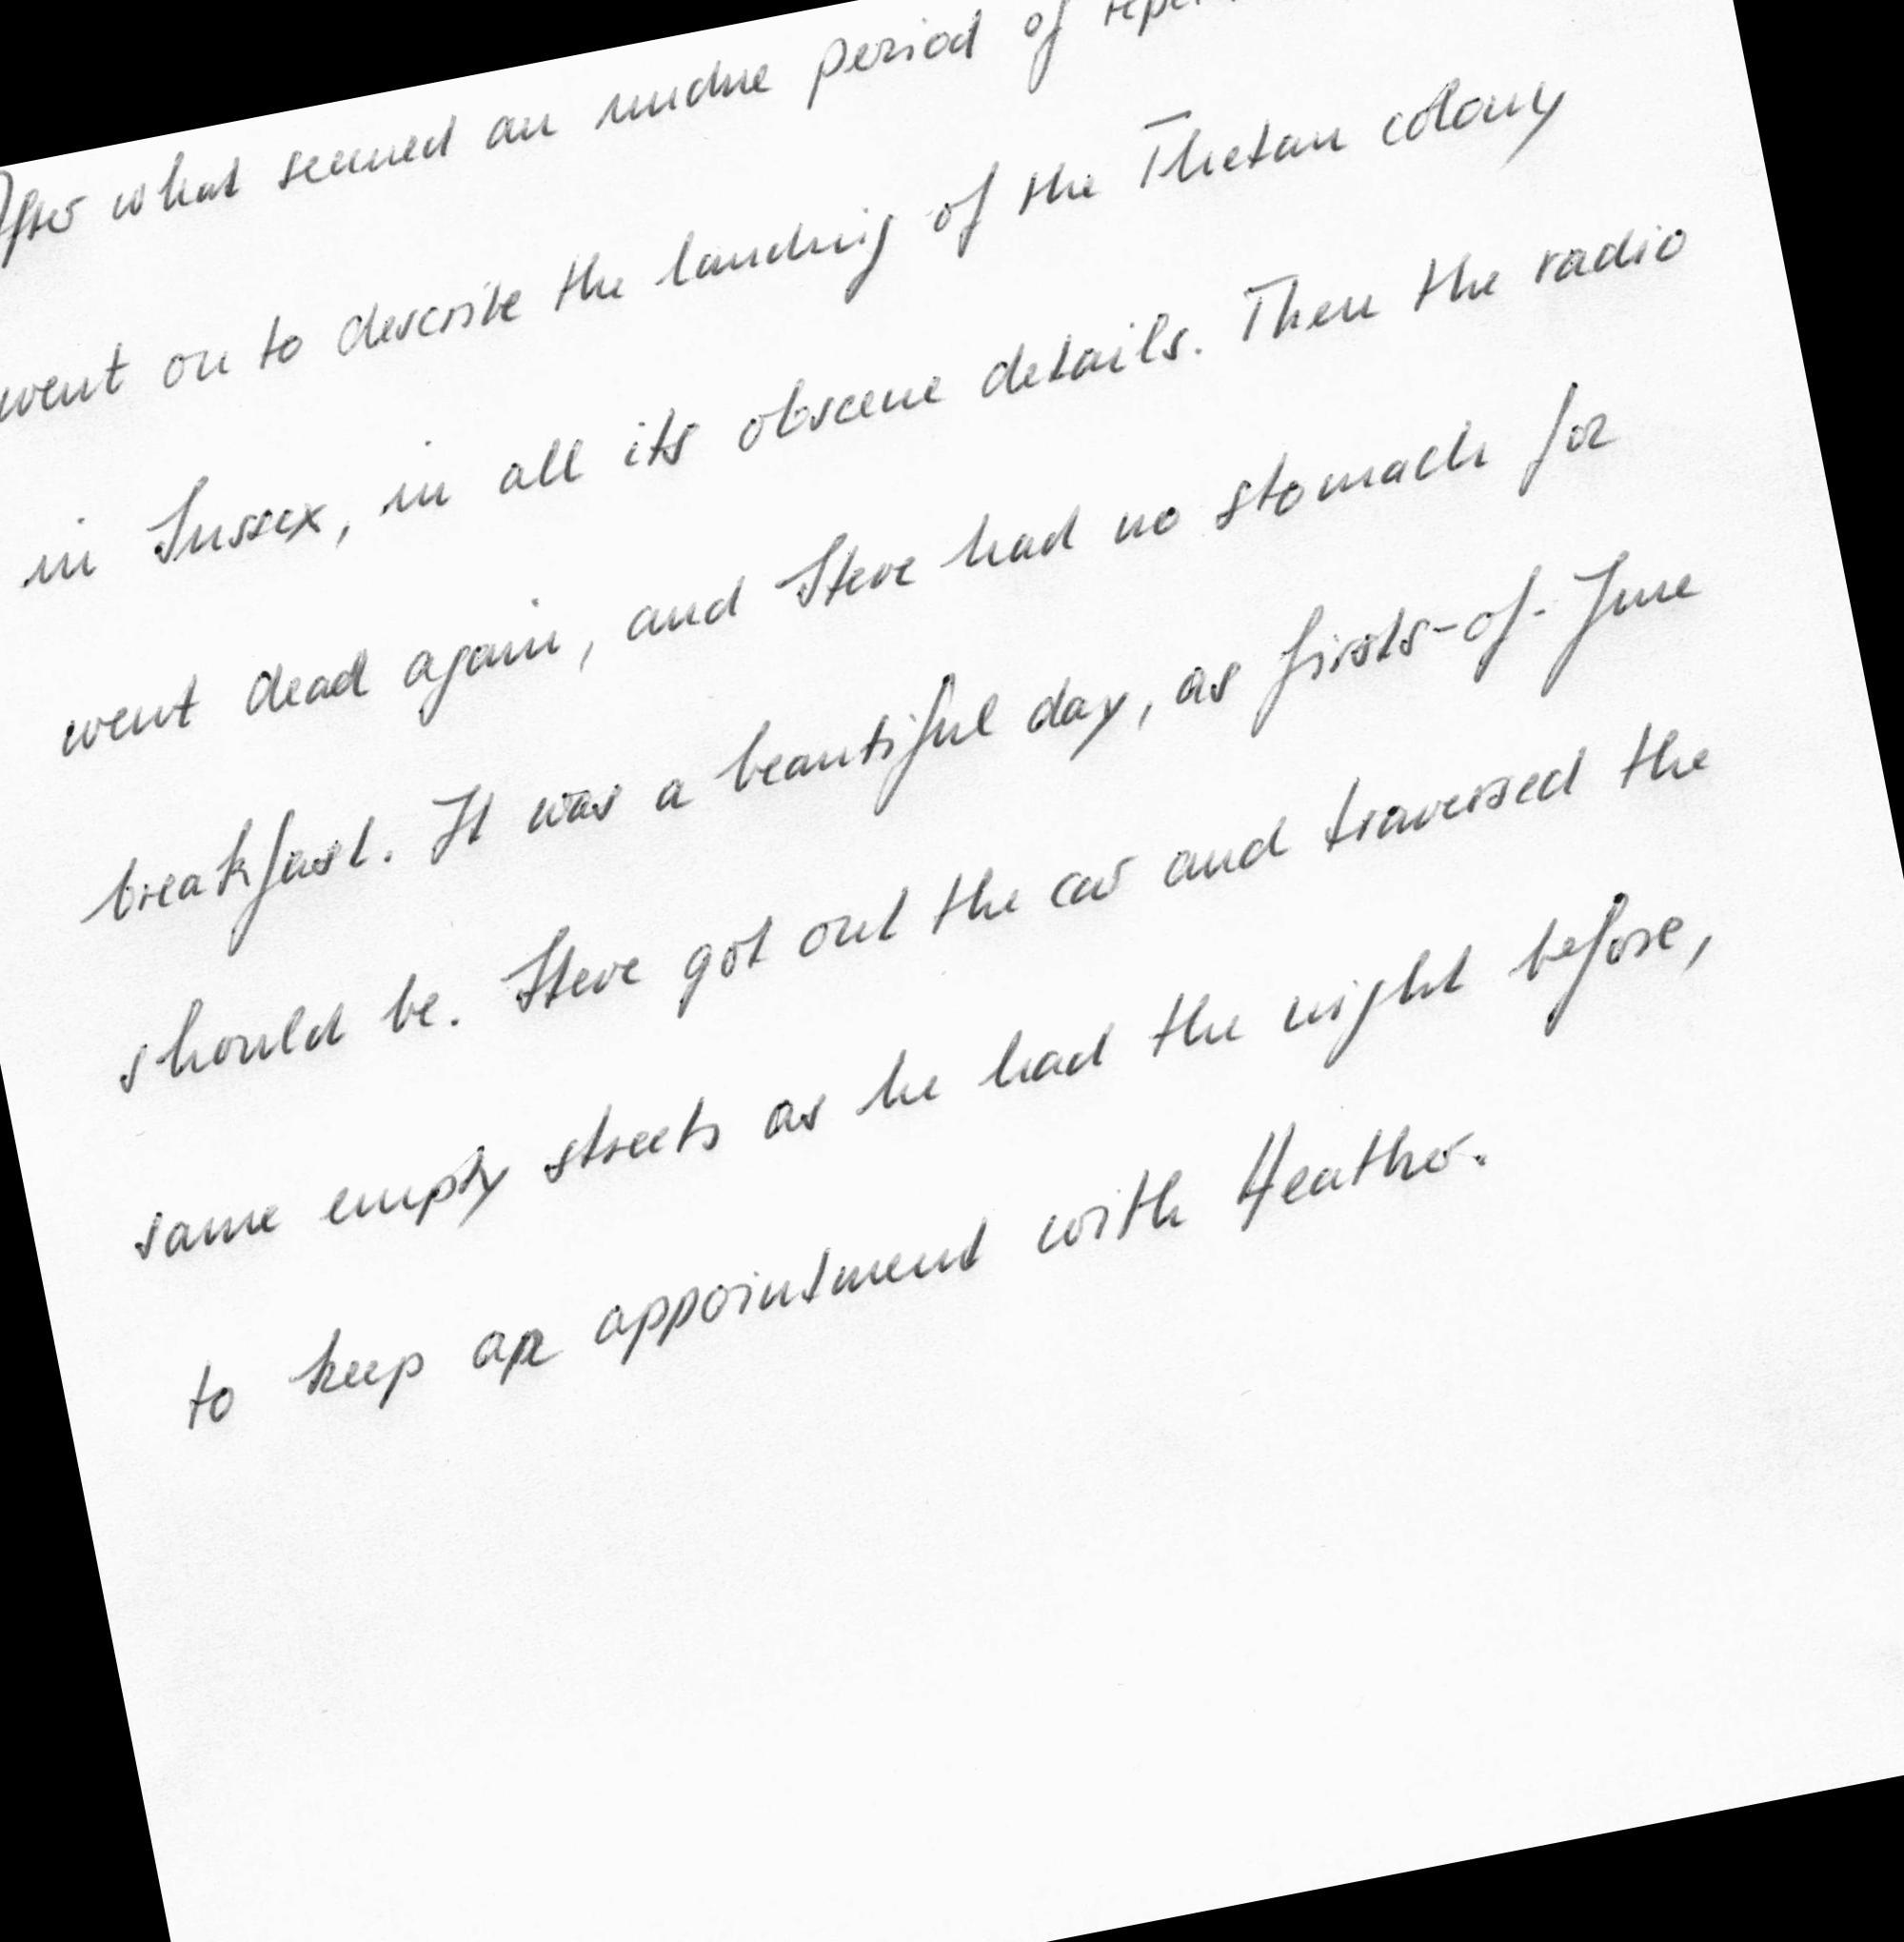 After what seemed an undue period of
went on to describe the landing of the Thetan colony
in Sussex, in all its obscene details. Then the radio
went dead again, and Steve had no stomach for
breakfast. It was a beautiful day, as firsts-of-June
should be. Steve got out the car and traversed the
same empty streets as he had the night before,
to keep an appointment with Heather.